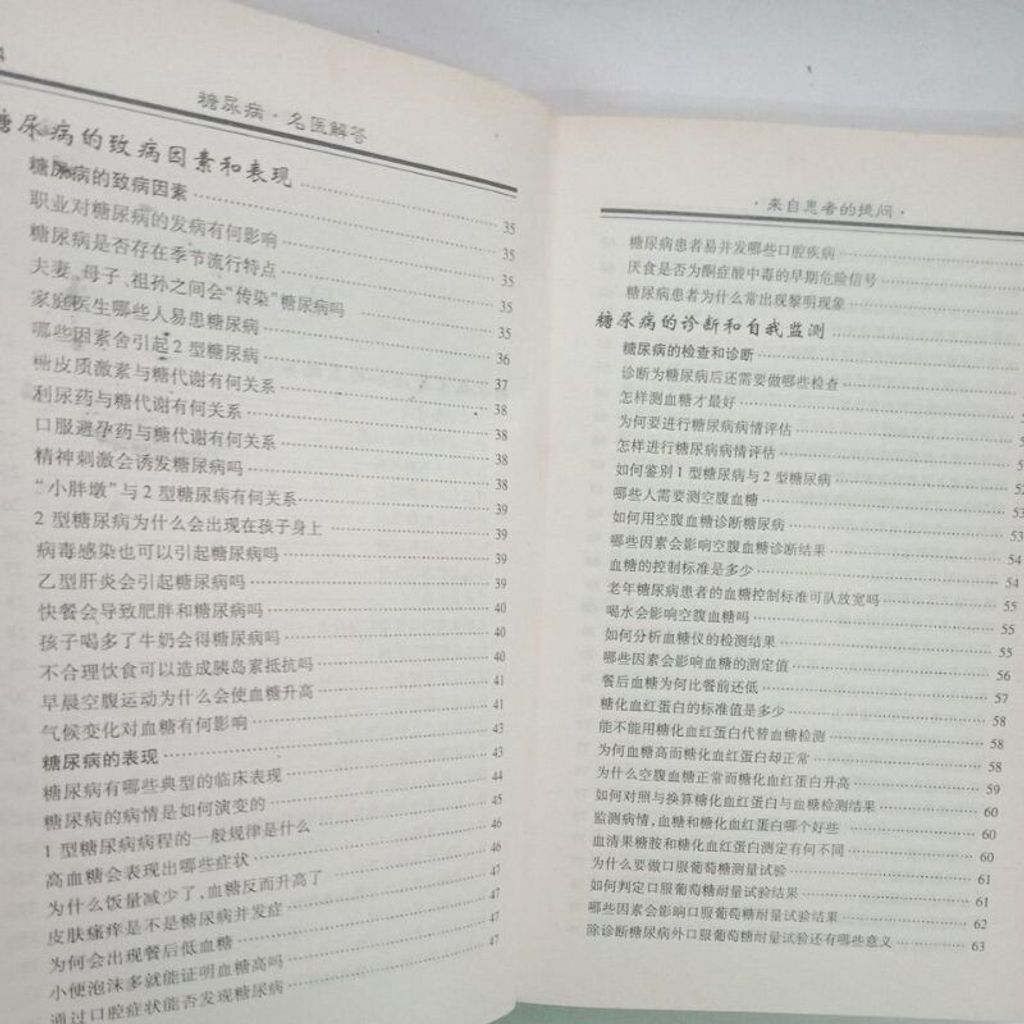 糖尿病·名医解答
糖尿病的致病因素和表现 …… 35
糖尿病的致病因素 …… 35
职业对糖尿病的发病有何影响 …… 35
糖尿病是否存在季节流行特点 …… 35
夫妻、母子、祖孙之间会“传染”糖尿病吗 …… 35
家庭医生哪些人易患糖尿病 …… 36
哪些因素会引起2型糖尿病 …… 37
糖皮质激素与糖代谢有何关系 …… 38
利尿药与糖代谢有何关系 …… 38
口服避孕药与糖代谢有何关系 …… 38
精神刺激会诱发糖尿病吗 …… 38
“小胖墩”与2型糖尿病有何关系 …… 39
2型糖尿病为什么会出现在孩子身上 …… 39
病毒感染也可以引起糖尿病吗 …… 39
乙型肝炎会引起糖尿病吗 …… 39
快餐会导致肥胖和糖尿病吗 …… 40
孩子喝多了牛奶会得糖尿病吗 …… 40
不合理饮食可以造成胰岛素抵抗吗 …… 40
早晨空腹运动为什么会使血糖升高 …… 41
气候变化对血糖有何影响 …… 41
糖尿病的表现 …… 43
糖尿病有哪些典型的临床表现 …… 43
糖尿病的病情是如何演变的 …… 44
1型糖尿病病程的一般规律是什么 …… 45
高血糖会表现出哪些症状 …… 46
为什么饭量减少了,血糖反而升高了 …… 46
皮肤瘙痒是不是糖尿病并发症 …… 47
为何会出现餐后低血糖 …… 47
小便泡沫多就能证明血糖高吗 …… 47
通过口腔症状能否发现糖尿病 …… 47
·来自患者的提问·
糖尿病患者易并发哪些口腔疾病 ……
厌食是否为酮症酸中毒的早期危险信号 ……
糖尿病患者为什么常出现黎明现象 ……
糖尿病的诊断和自我监测 ……
糖尿病的检查和诊断 ……
诊断为糖尿病后还需要做哪些检查 ……
怎样测血糖才最好 ……
为何要进行糖尿病病情评估 ……
怎样进行糖尿病病情评估 ……
如何鉴别1型糖尿病与2型糖尿病 ……
哪些人需要测空腹血糖 …… 53
如何用空腹血糖诊断糖尿病 …… 53
哪些因素会影响空腹血糖诊断结果 …… 54
血糖的控制标准是多少 …… 54
老年糖尿病患者的血糖控制标准可以放宽吗 …… 55
喝水会影响空腹血糖吗 …… 55
如何分析血糖仪的检测结果 …… 55
哪些因素会影响血糖的测定值 …… 56
餐后血糖为何比餐前还低 …… 57
糖化血红蛋白的标准值是多少 …… 58
能不能用糖化血红蛋白代替血糖检测 …… 58
为何血糖高而糖化血红蛋白却正常 …… 58
为什么空腹血糖正常而糖化血红蛋白升高 …… 59
如何对照与换算糖化血红蛋白与血糖检测结果 …… 60
监测病情,血糖和糖化血红蛋白哪个好些 …… 60
血清果糖胺和糖化血红蛋白测定有何不同 …… 60
为什么要做口服葡萄糖测量试验 …… 61
如何判定口服葡萄糖耐量试验结果 …… 61
哪些因素会影响口服葡萄糖耐量试验结果 …… 62
除诊断糖尿病外口服葡萄糖耐量试验还有哪些意义 …… 63